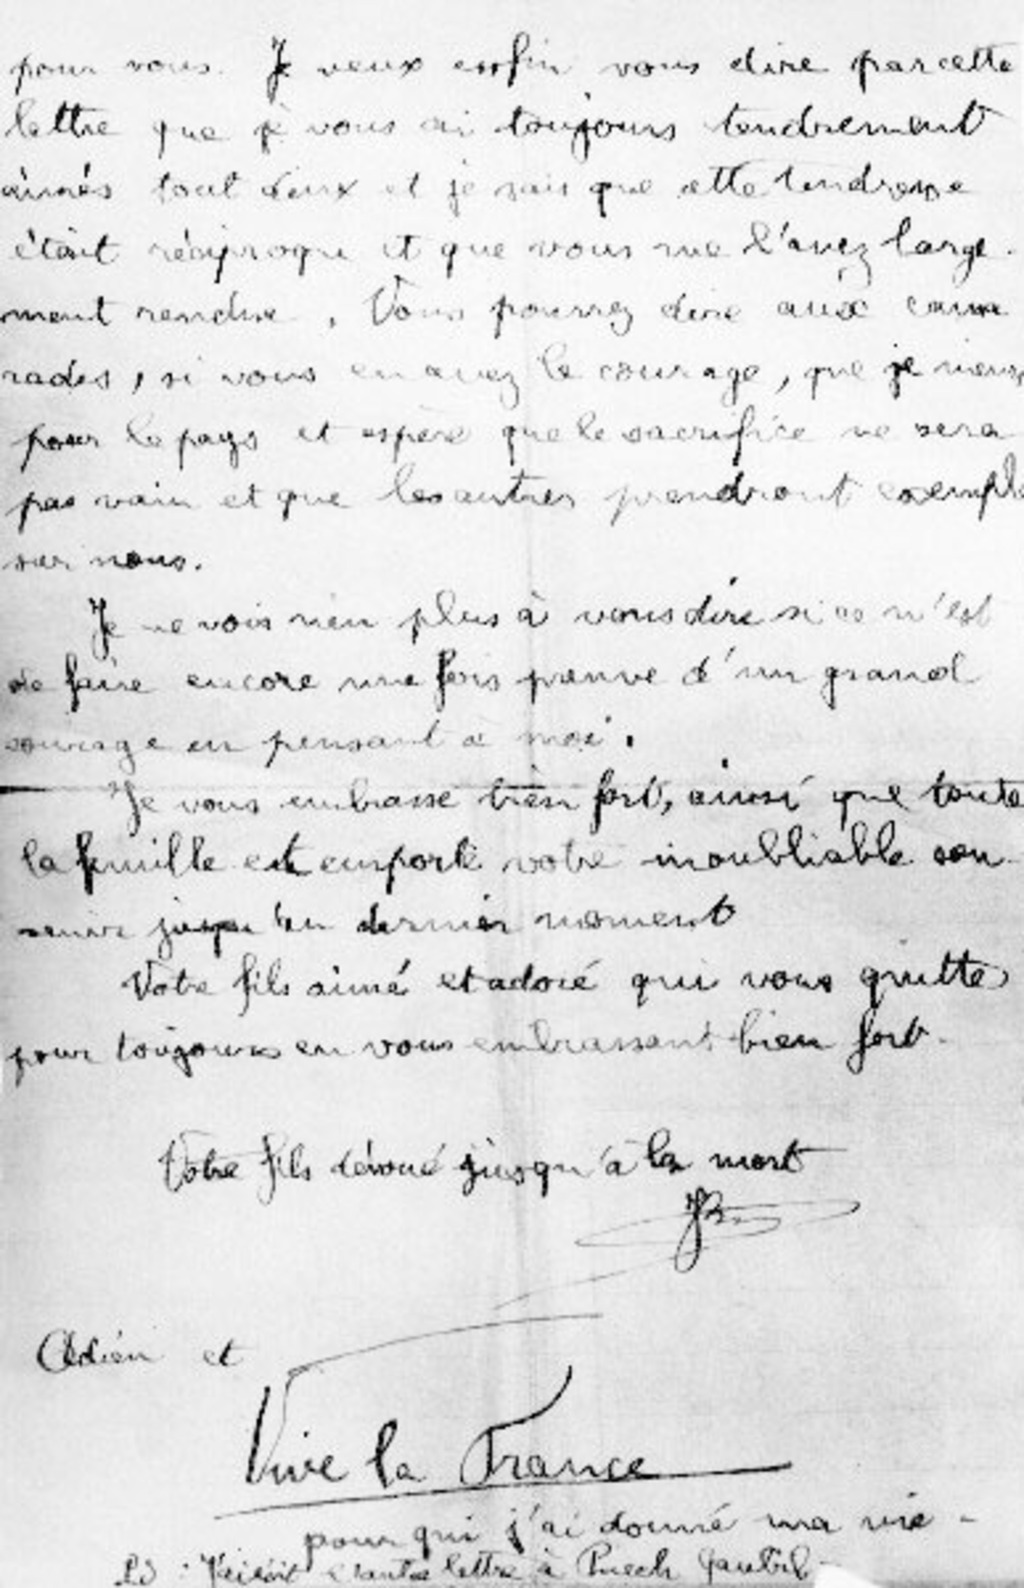 pour vous. Je veux enfin vous dire par cette
lettre que je vous ai toujours tendrement
aimés tout deux et je sais que cette tendresse
était réciproque et que vous me l'avez large-
ment rendue. Vous pourrez dire aux cama
rades, si vous en avez le courage, que je meurs
pour le pays et espère que le sacrifice ne sera
pas vain et que les autres prendront exemple
sur nous.
Je ne vois rien plus à vous dire si ce n'est
de faire encore une fois preuve d'un grand
courage en pensant à moi.
Je vous embrasse très fort, ainsi que toute
la famille et emporte votre inoubliable sou-
venir jusqu'au dernier moment
Votre fils aimé et adoré qui vous quitte
pour toujours en vous embrassant bien fort.
Votre fils dévoué jusqu'à la mort
Adieu et
Vive la France
pour qui j'ai donné ma vie -
lettre à Puech